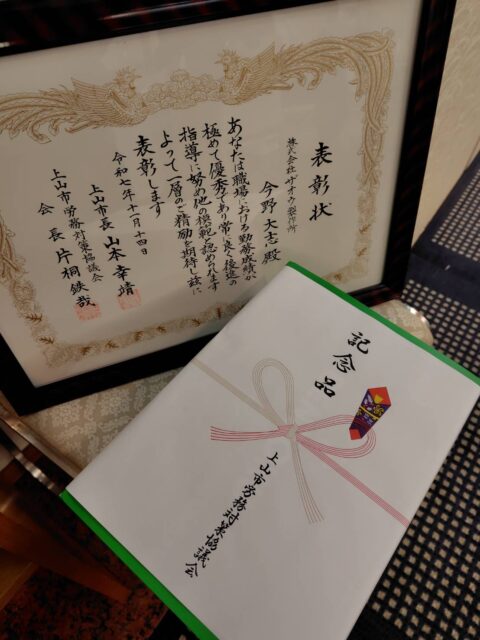 表彰状
株式会社ザオウ製作所
今野大志殿
あなたは職場における勤務成績が
極めて優秀であり常に良く後進の
指導に努め他の模範と認められます
よって一層のご精励を期待し茲に
表彰します
令和七年十一月十四日
上山市長 山本幸靖
上山市労務対策協議会
会長 片桐鉄哉
記念品
上山市労務対策協議会